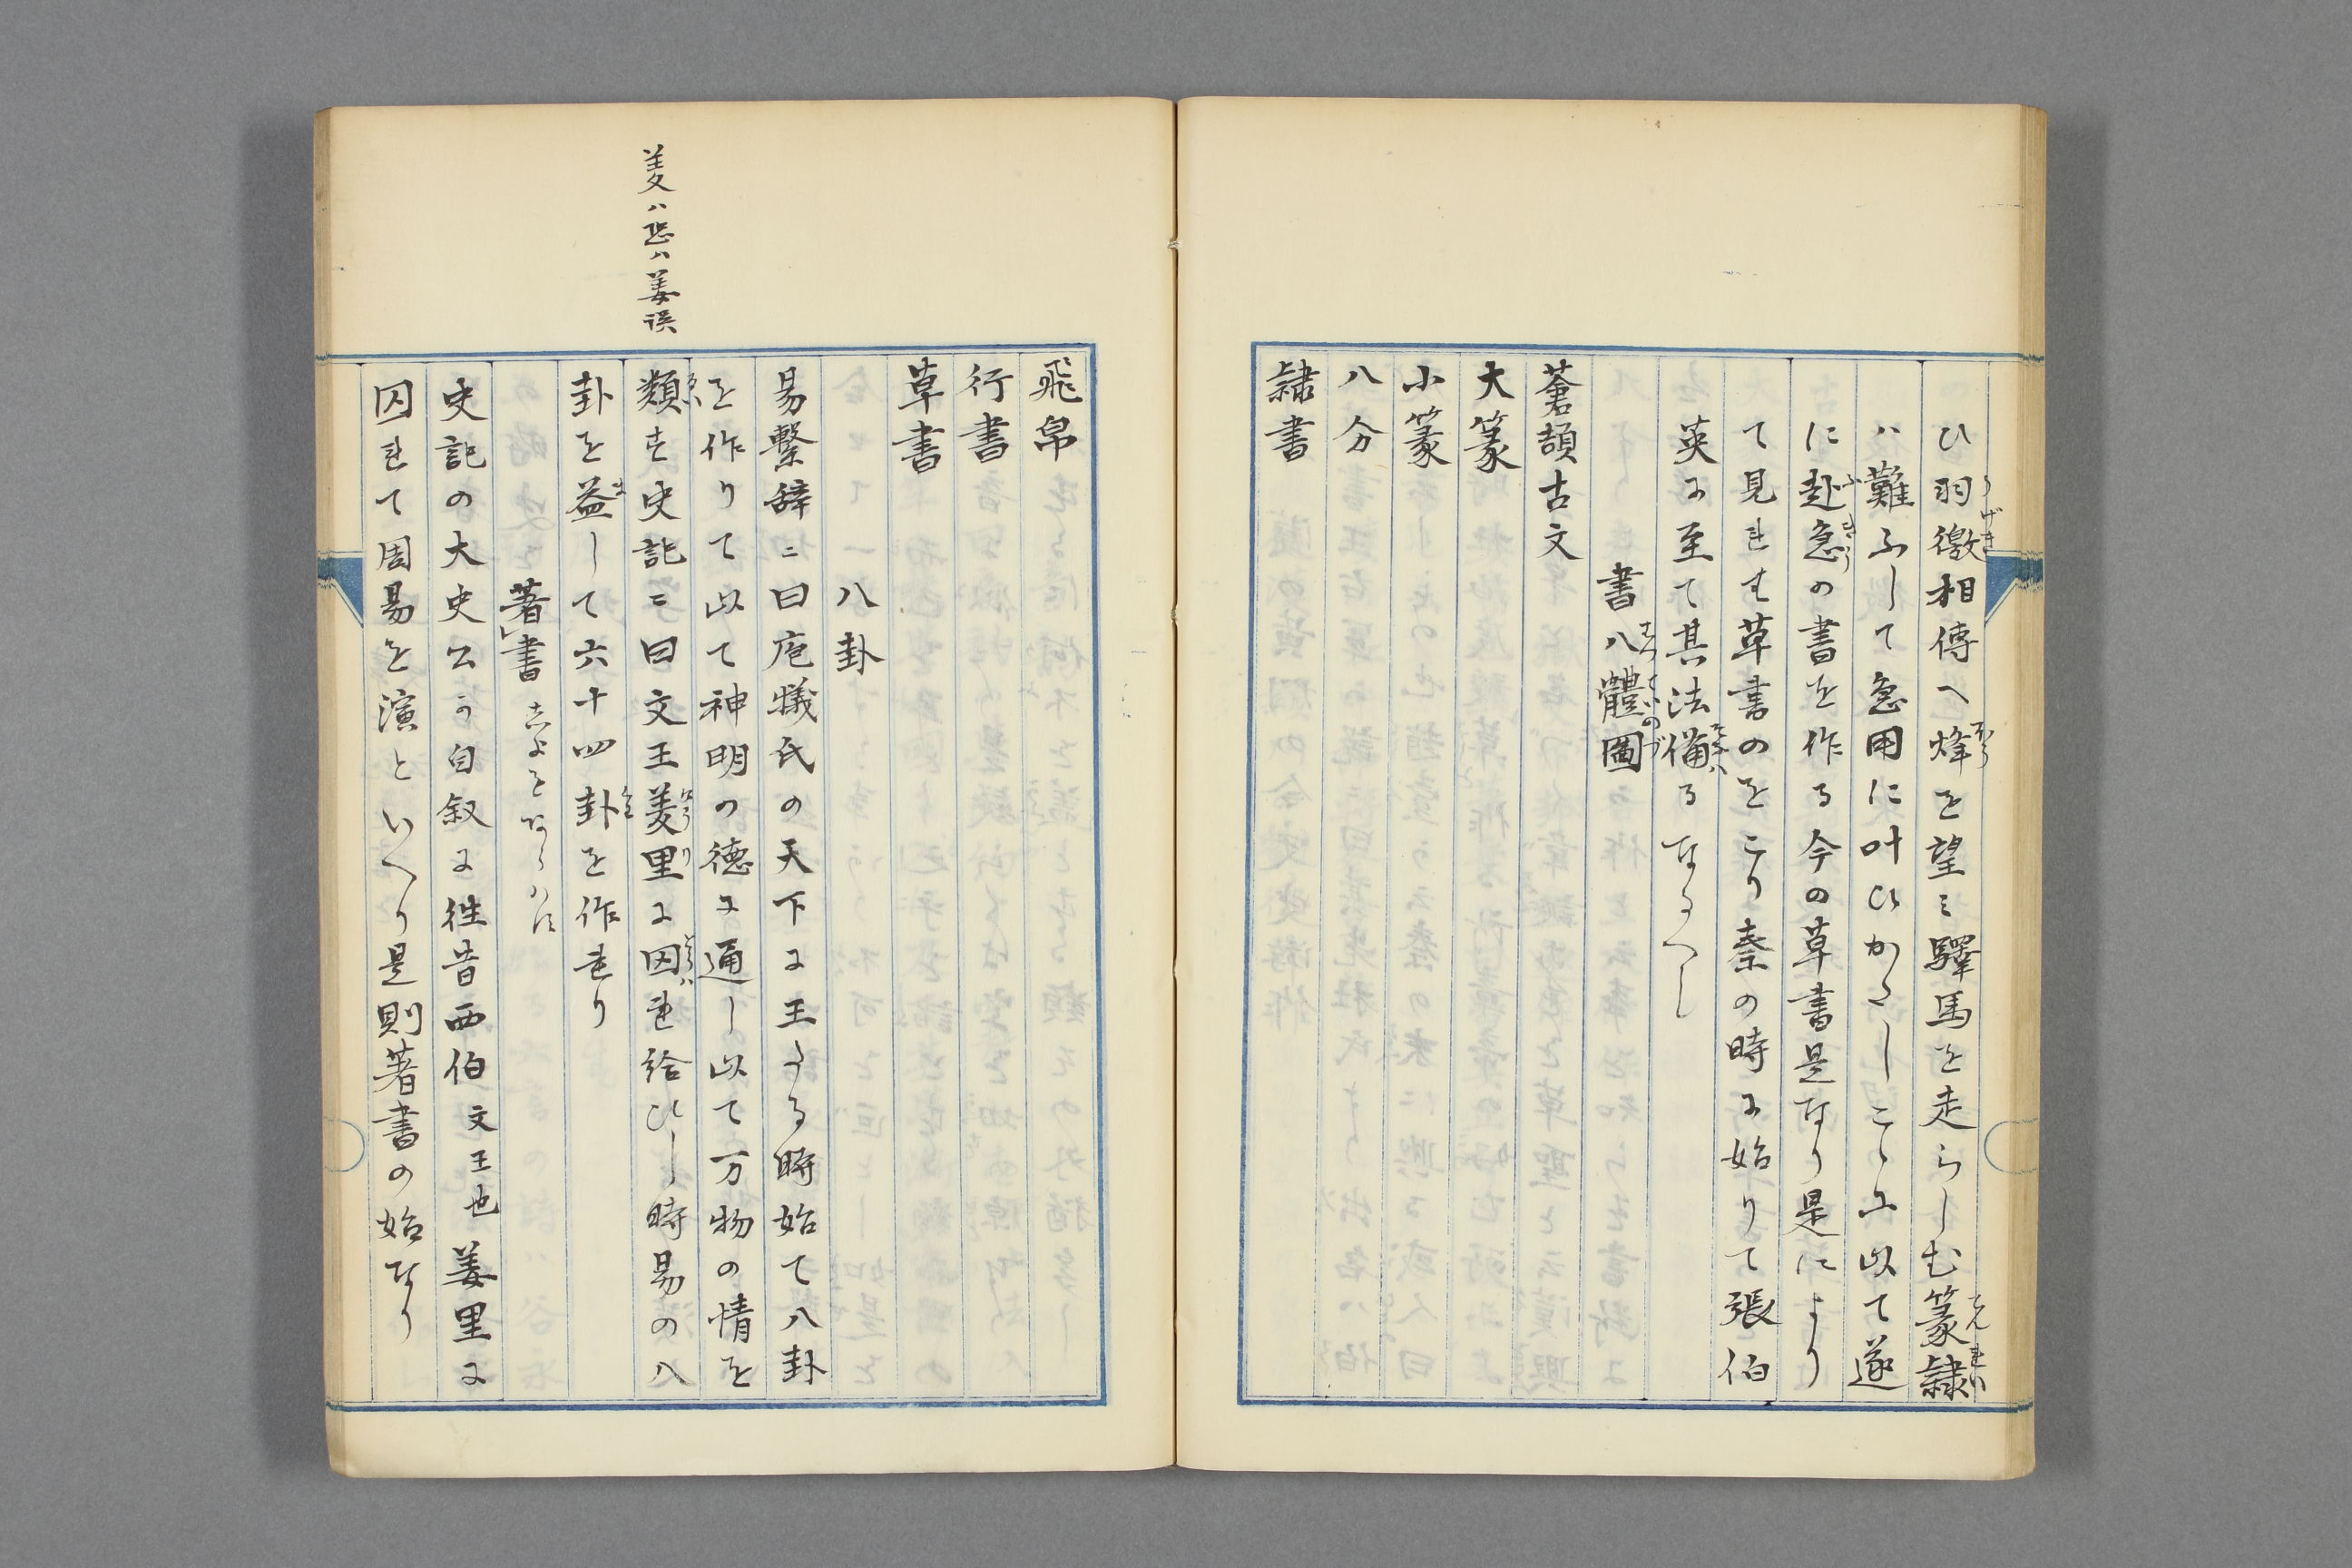 ひ羽檄相傳へ烽を望ミ驛馬を走らしむ篆隷
ハ難ふして急用に叶ひかたしこゝに以て遂
に赴急の書を作る今の草書是なり是により
て見れは草書のをこり秦の時に始りて張伯
英に至て其法備るなるへし
書八體圖
蒼頡古文
大篆
小篆
八分
隷書
飛帛
行書
草書
八卦
易繋辞ニ曰庖犠氏の天下に王たる時始て八卦
を作りて以て神明の徳に通し以て万物の情を
類す史記ニ曰文王羑里に囚れ給ひし時易の八
卦を益して六十四卦を作れり
著書 志よをあらハす
史記の大史公か自叙に徃昔西伯文王也姜里に
囚れて周易を演といへり是則著書の始なり
羑ハ恐ハ姜誤